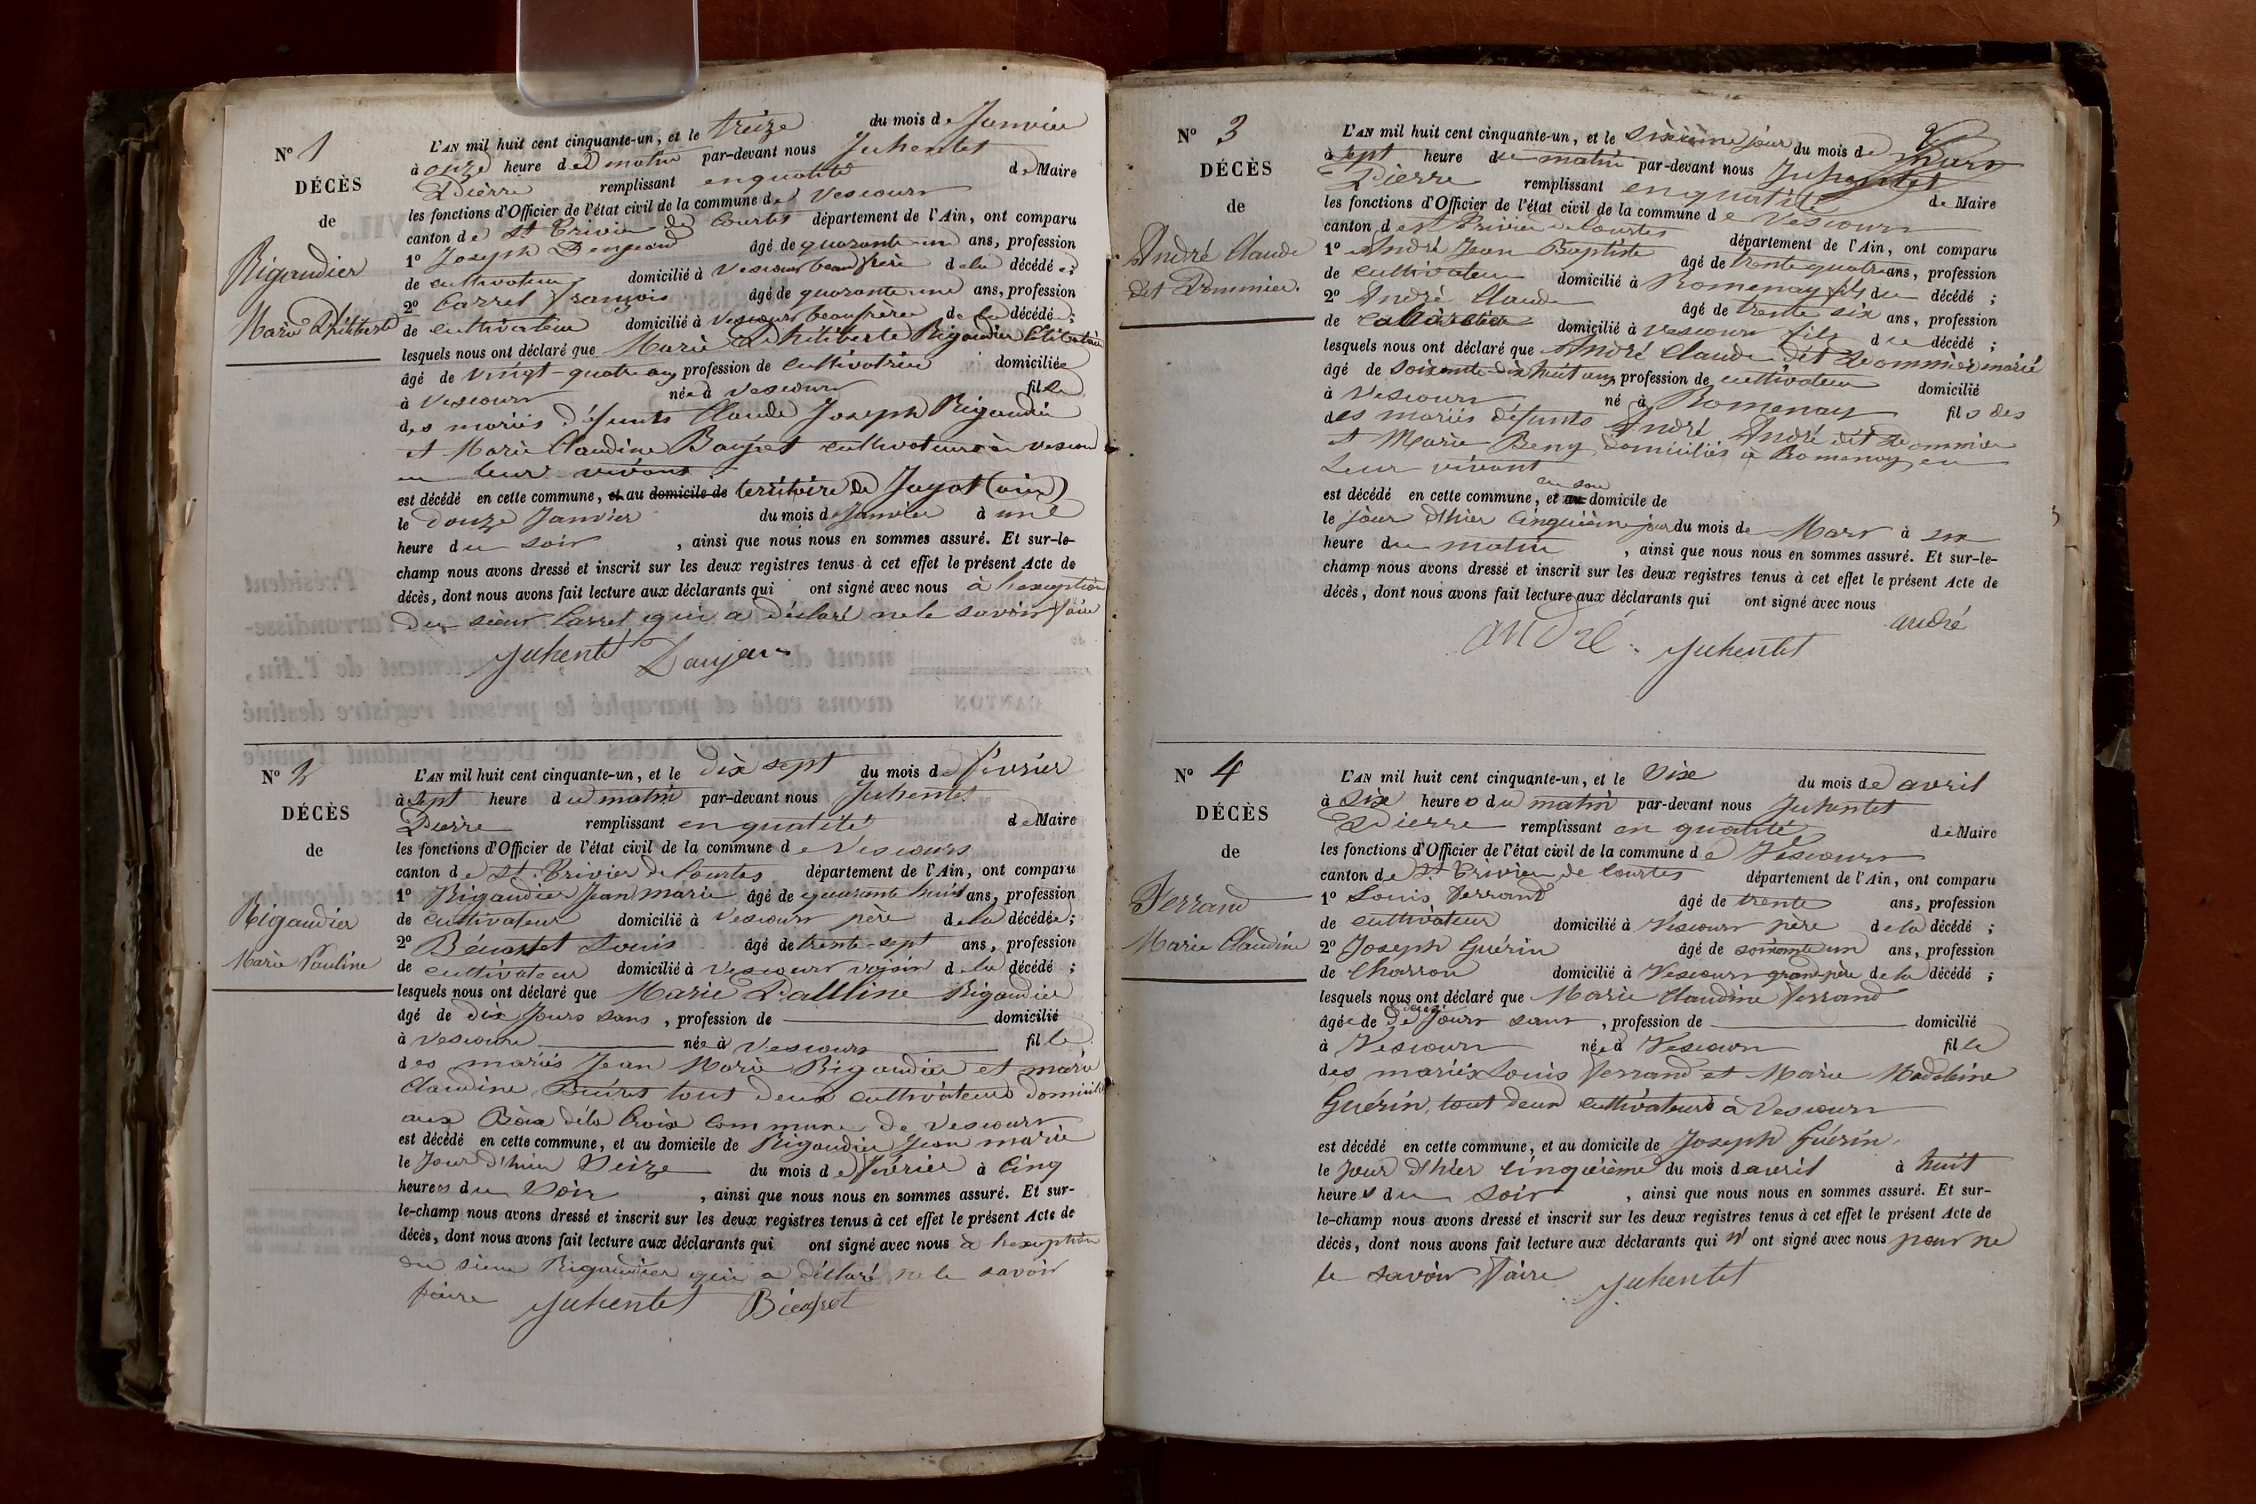 N° 1
DÉCÈS
de
Rigaudier
Marie Philiberte
L'AN mil huit cent cinquante-un, et le treize du mois de Janvier
à onze heure du matin par-devant nous Juhentet
Pierre remplissant en qualité de Maire
les fonctions d'Officier de l'état civil de la commune de Vescours
canton de St Trivier de Courtes département de l'Ain, ont comparu
1° Joseph âgé de quarante un ans, profession
de cultivateur domicilié à Vescours beau frère de la décédée ;
2° Carret françois âgé de quarante une ans, profession
de cultivateur domicilié à Vescours beaufrère de la décédé ;
lesquels nous ont déclaré que Marie Philiberte Rigaudier
âgé de vingt-quatre ans profession de cultivatrice domiciliée
à Vescours née à Vescours fille
des mariés défunts Claude Joseph Rigaudier
et Marie Claudine cultivateurs à vescours
en leur vivant
est décédé en cette commune, et au domicile de territoire de Jayat (ain)
le douze Janvier du mois de Janvier à une
heure du soir , ainsi que nous nous en sommes assuré. Et sur-le-
champ nous avons dressé et inscrit sur les deux registres tenus à cet effet le présent Acte de
décès, dont nous avons fait lecture aux déclarants qui ont signé avec nous à l'exeption
du sieur Carret qui a déclaré ne le savoir faire
Juhentet Danjean
N° 2
DÉCÈS
de
Rigaudier
Marie Pauline
L'AN mil huit cent cinquante-un, et le dix sept du mois de février
à sept heure du matin par-devant nous Juhentet
Pierre remplissant en qualité de Maire
les fonctions d'Officier de l'état civil de la commune de Vescours
canton de St Trivier de Courtes département de l'Ain, ont comparu
1° Rigaudier Jean marie âgé de quarante huit ans, profession
de cultivateur domicilié à Vescours père de la décédée ;
2° Louis âgé de trente-sept ans, profession
de cultivateur domicilié à Vescours voisin de la décédé ;
lesquels nous ont déclaré que Marie Paulline Rigaudier
âgé de dix Jours sans , profession de domicilié
à Vescours née à Vescours fille
des mariés Jean Marie Rigaudier et marie
Claudine tout deux cultivateurs domiciliés
aux Bois dela Croix Commune de Vescours
est décédé en cette commune, et au domicile de Rigaudier Jean marie
le Jour d'hier Seize du mois de février à Cinq
heures du Soir , ainsi que nous nous en sommes assuré. Et sur-
le-champ nous avons dressé et inscrit sur les deux registres tenus à cet effet le présent Acte de
décès, dont nous avons fait lecture aux déclarants qui ont signé avec nous à l'exeption
du sieur Rigaudier qui a déclaré ne le savoir
faire Juhentet
N° 3
DÉCÈS
de
André Claude
dit Pommier.
L'AN mil huit cent cinquante-un, et le sixième jour du mois de Mars
à sept heure du matin par-devant nous Juhentet
Pierre remplissant en qualité de Maire
les fonctions d'Officier de l'état civil de la commune de Vescours
canton de St Trivier de Courtes département de l'Ain, ont comparu
1° André Jean Baptiste âgé de trente quatre ans, profession
de cultivateur domicilié à Romenay fils du décédé ;
2° André Claude âgé de trente six ans, profession
de domicilié à Vescours fils du décédé ;
lesquels nous ont déclaré que André Claude dit Pommier marié
âgé de soixante-dix huit ans profession de cultivateur domicilié
à Vescours né à Romenay fils des
des mariés défunts André André dit Pommier
et Marie domiciliés à Romenay en
Leur vivant
est décédé en cette commune, et au en son domicile de
le jour d'hier Cinquième jour du mois de Mars à six
heure du matin , ainsi que nous nous en sommes assuré. Et sur-le-
champ nous avons dressé et inscrit sur les deux registres tenus à cet effet le présent Acte de
décès, dont nous avons fait lecture aux déclarants qui ont signé avec nous
andré
andré Juhentet
N° 4
DÉCÈS
de
Ferrand
Marie Claudine
L'AN mil huit cent cinquante-un, et le Six du mois de avril
à Six heures du matin par-devant nous Juhentet
Pierre remplissant en qualité de Maire
les fonctions d'Officier de l'état civil de la commune de Vescours
canton de St Trivier de Courtes département de l'Ain, ont comparu
1° Louis Ferrand âgé de trente ans, profession
de cultivateur domicilié à Vescours père de la décédé ;
2° Joseph Guérin âgé de soixante un ans, profession
de Charron domicilié à Vescours grand père de la décédé ;
lesquels nous ont déclaré que Marie Claudine Ferrand
âgée de Jours sans , profession de domicilié
à Vescours née à Vescours fille
des mariés Louis Ferrand et Marie Madeleine
Guérin, tout deux cultivateurs à Vescours
est décédé en cette commune, et au domicile de Joseph Guérin
le Jour d'hier cinquième du mois d'avril à huit
heures du soir , ainsi que nous nous en sommes assuré. Et sur-
le-champ nous avons dressé et inscrit sur les deux registres tenus à cet effet le présent Acte de
décès, dont nous avons fait lecture aux déclarants qui n'ont signé avec nous pour ne
le savoir faire Juhentet